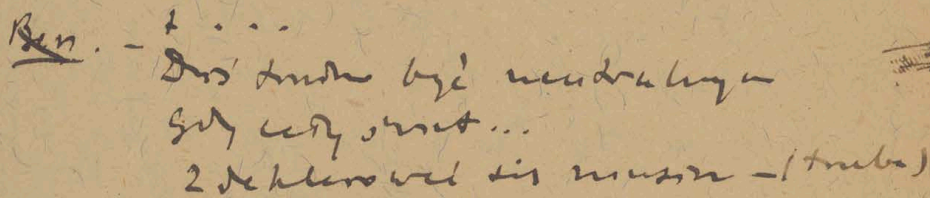 Ben. – t . . . .
Dziś trudno być neutralnym
gdy cały świat...
zdeklarować się muszą – (trąba)